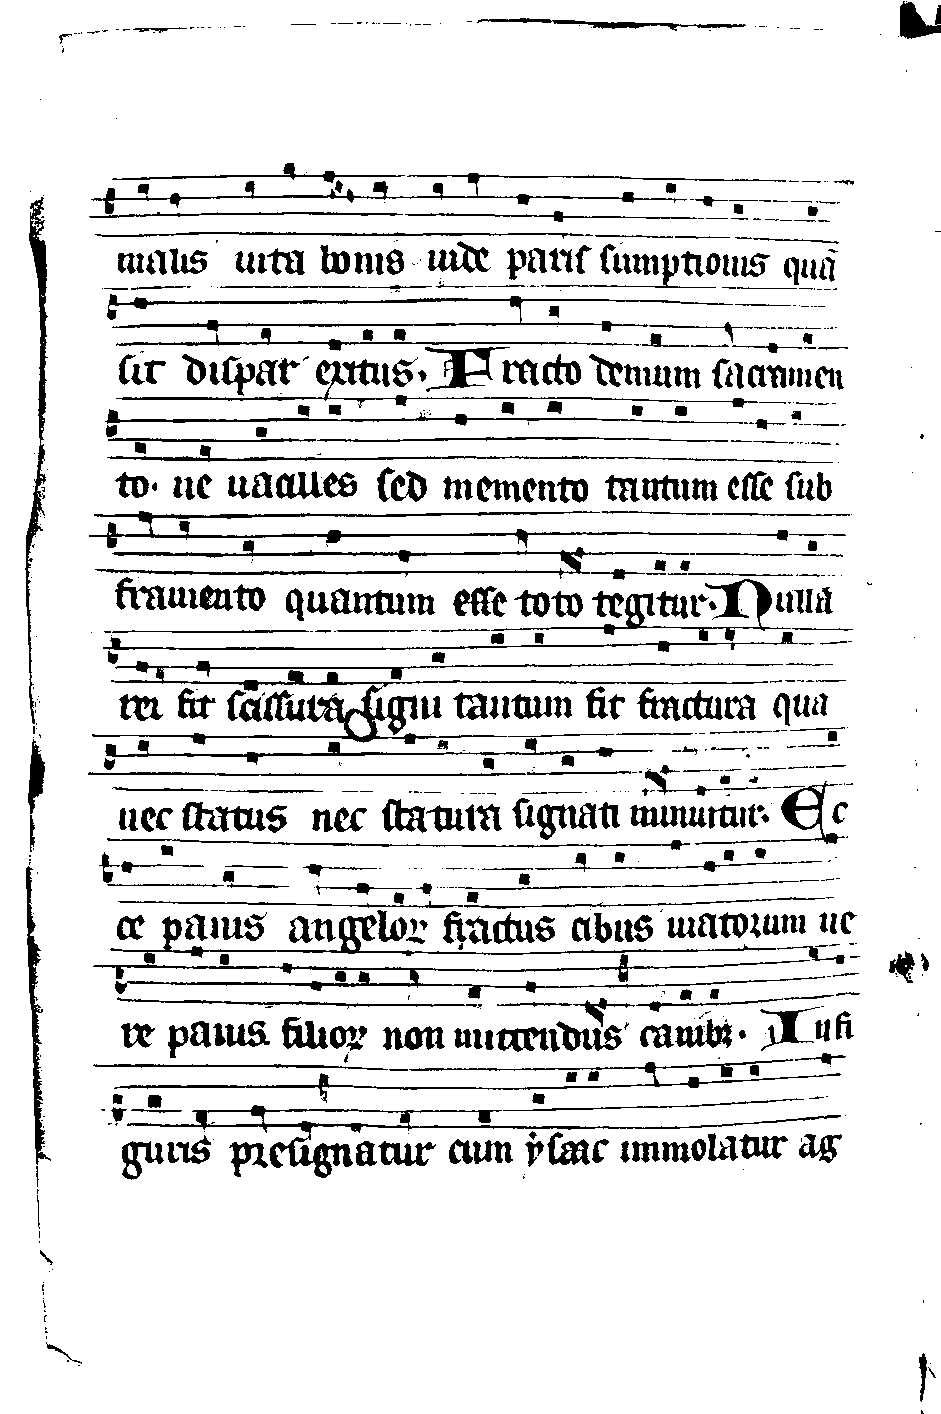 malis uita bonis uide paris sumptionis quã
sit dispar exitus. Fracto demum sacramen
to. ne uacilles sed memento tantum esse sub
framento quantum esse toto tegitur. Nulla
rei fit scissura signi tantum fit fractura qua
nec status nec statura signati minuitur. Ec
ce panis angeloꝝ fractus cibus uiatorum ue
re panis filioꝝ non mittendus canibꝫ. In fi
guris presignatur cum ẏsaac immolatur ag